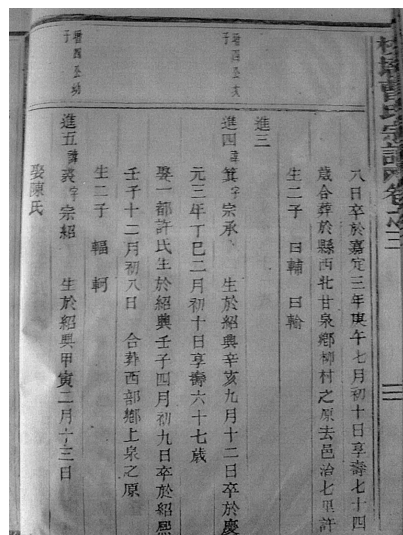 曹氏宗譜 卷之三
八日卒於嘉定三年庚午七月初十日享壽七十四
歲合葬於縣西北甘泉鄉柳村之原去邑治七里許
生二子 曰輔 曰輪
進三
進四 諱箕字宗承 生於紹興辛亥九月十二日卒於慶
元三年丁巳二月初十日享壽六十七歲
娶一都許氏生於紹興壬子四月初九日卒於紹熙
壬子十二月初八日 合葬西部鄉上泉之原
生二子 輻 軻
進五 諱裘字宗紹 生於紹興甲寅二月十三日
娶陳氏
四公次
子
四公幼
子